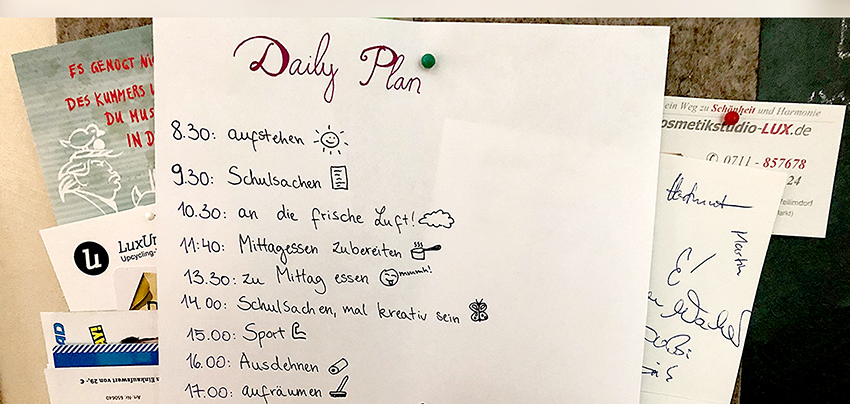 Daily Plan
8.30: aufstehen
9.30: Schulsachen
10.30: an die frische Luft!
11:40: Mittagessen zubereiten
13.30: zu Mittag essen mmmh!
14.00: Schulsachen, mal kreativ sein
15.00: Sport
16.00: Ausdehnen
17.00: aufräumen
ES GENÜGT
DES KUMMERS
DU
IN
u
Upcycling-
s Einkaufswert von 29,- €
Art.-Nr. 650640
ein Weg zu Schönheit und Harmonie
osmetikstudio-LUX.de
0711 - 857678
24
Markt)
Martin
E!